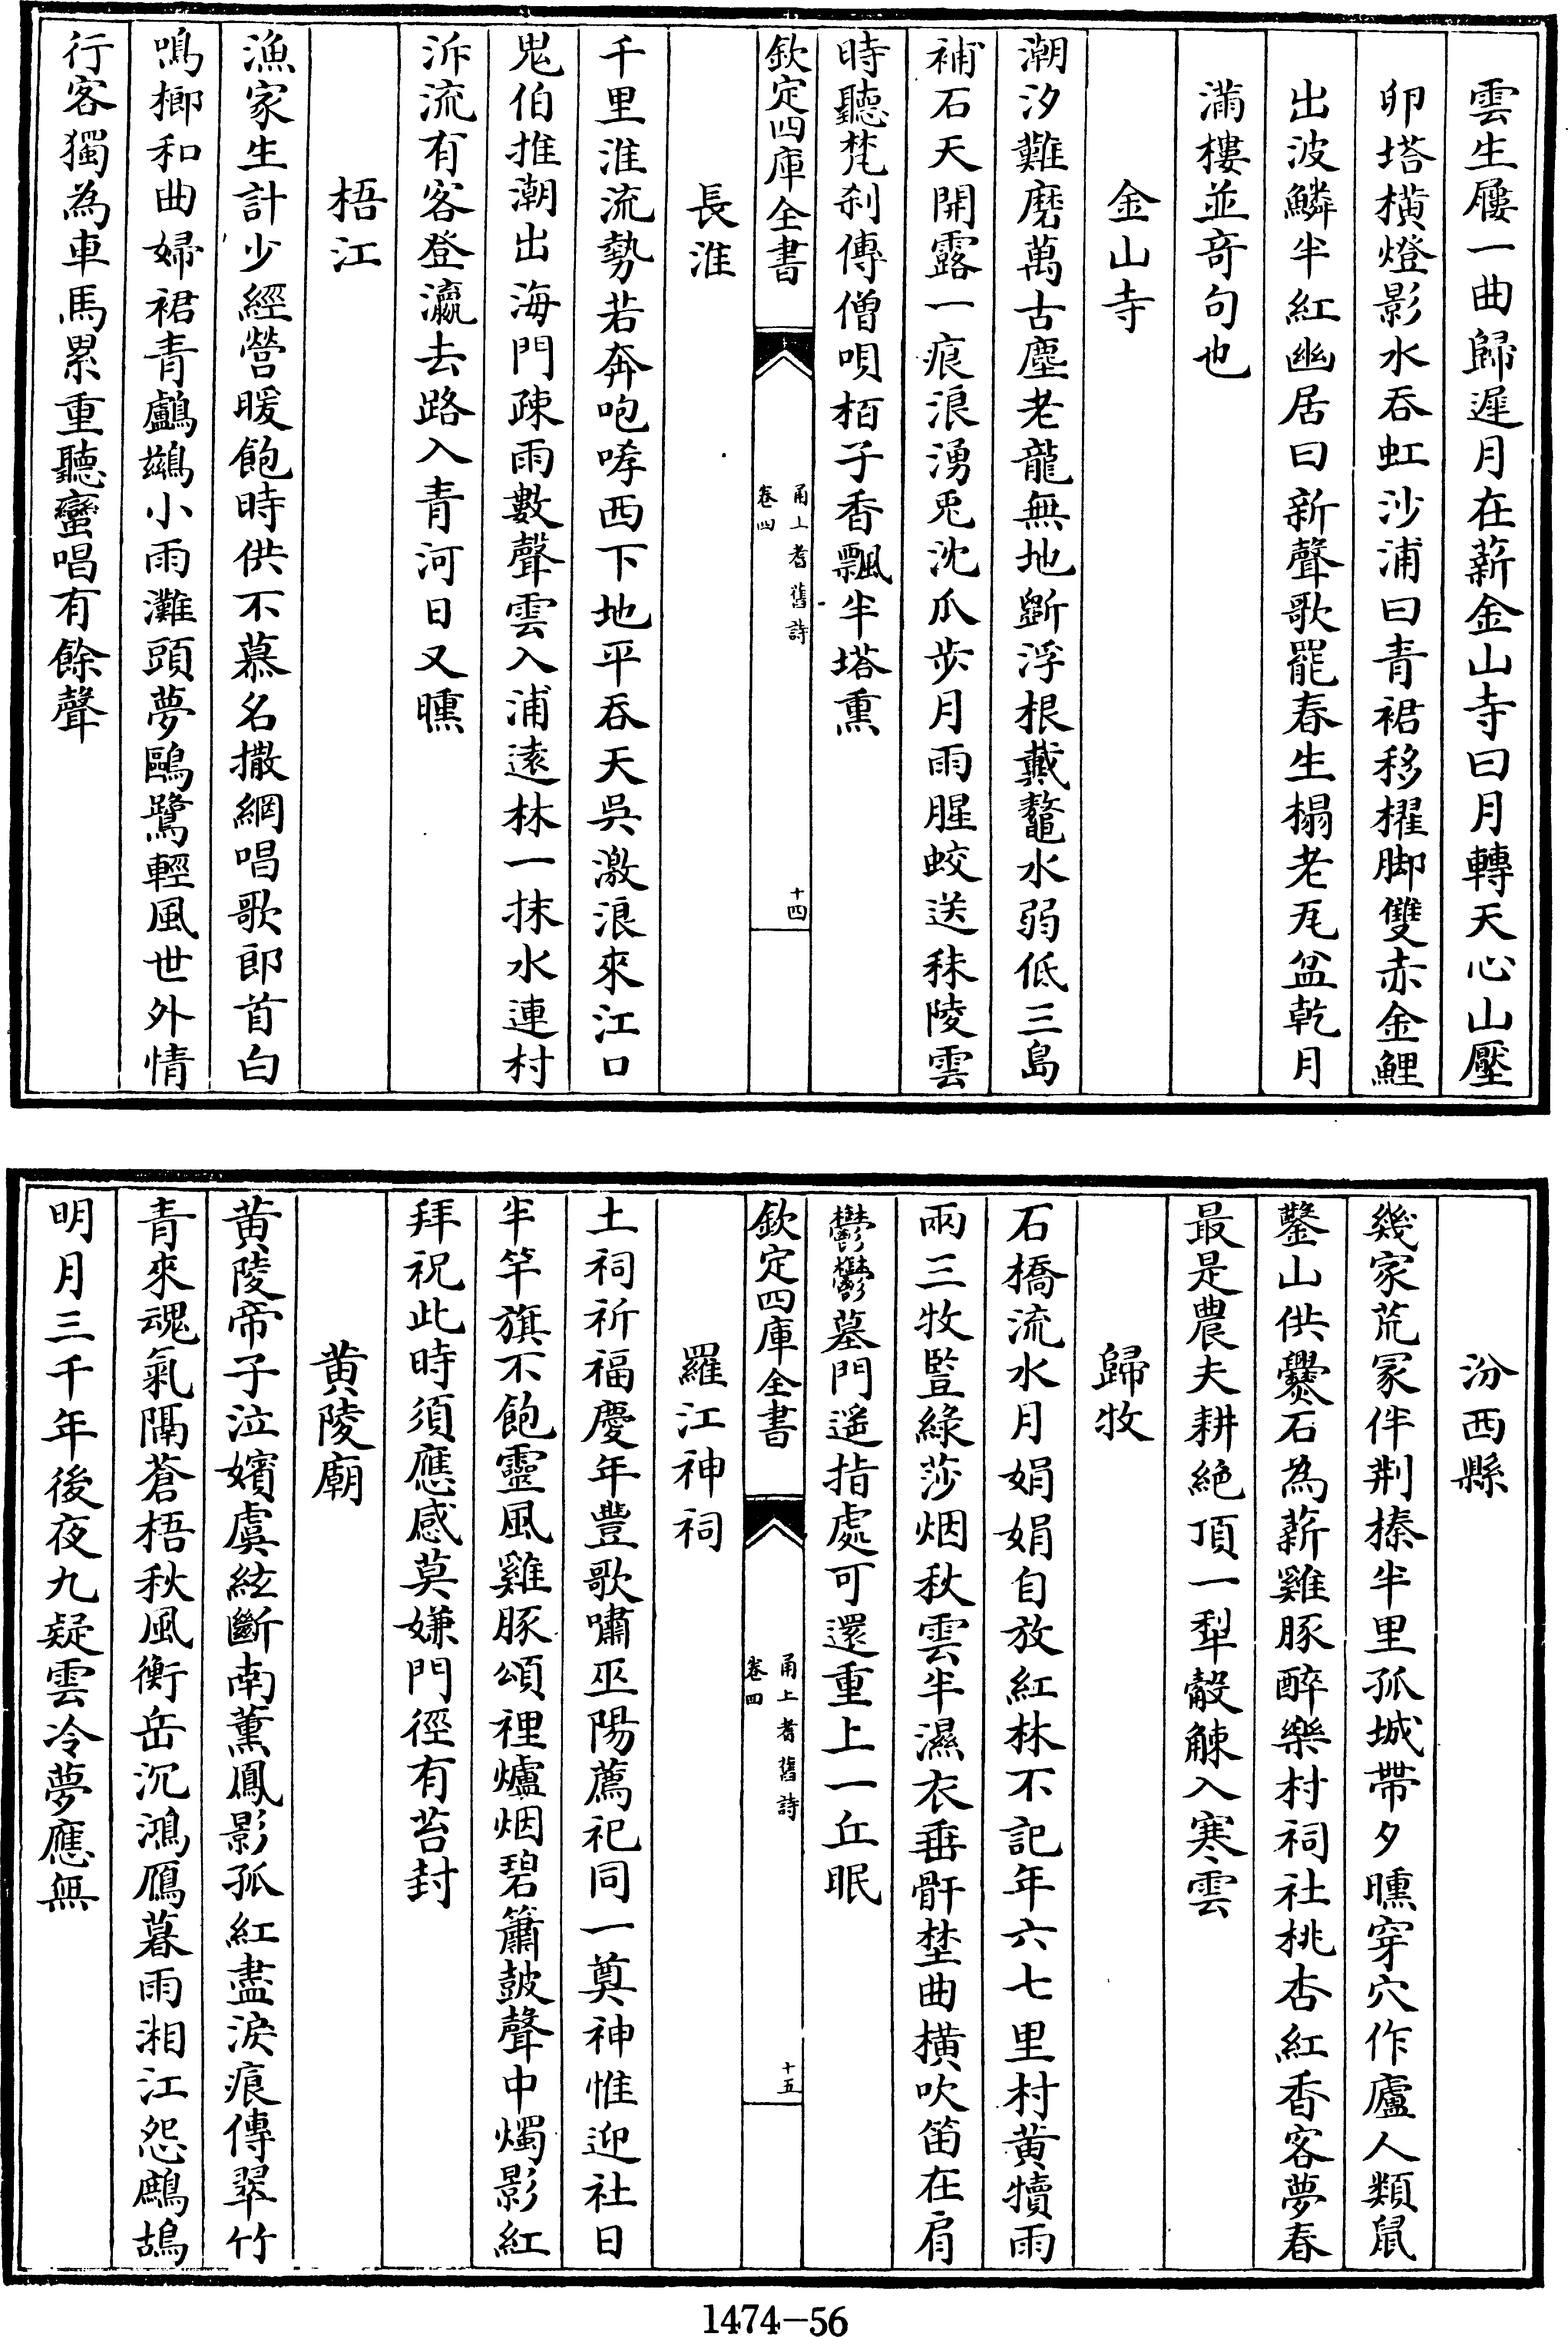 雲生屨一曲歸遲月在薪金山寺曰月轉天心山壓
卵塔橫燈影水吞虹沙浦曰青裙移櫂脚雙赤金鯉
出波鱗半紅幽居曰新聲歌罷春生榻老瓦盆乾月
滿樓並奇句也
金山寺
潮汐難磨萬古塵老龍無地斵浮根戴鼇水弱低三島
補石天開露一痕浪湧兎沈爪步月雨腥蛟送秣陵雲
時聽梵刹傳僧唄栢子香飄半塔熏
欽定四庫全書
甬上耆舊詩
卷四
十四
長淮
千里淮流勢若奔咆哮西下地平吞天吳激浪來江口
鬼伯推潮出海門疎雨數聲雲入浦遠林一抹水連村
泝流有客登瀛去路入青河日又曛
梧江
漁家生計少經營暖飽時供不慕名撒網唱歌郎首白
鳴榔和曲婦裙青鸕鷀小雨灘頭夢鷗鷺輕風世外情
行客獨為車馬累重聽蠻唱有餘聲
汾西縣
幾家荒冢伴荆榛半里孤城帶夕曛穿穴作廬人類鼠
鑿山供爨石為薪雞豚醉樂村祠社桃杏紅香客夢春
最是農夫耕絶頂一犁觳觫入寒雲
歸牧
石橋流水月娟娟自放紅林不記年六七里村黄犢雨
兩三牧豎綠莎烟秋雲半濕衣垂骭埜曲橫吹笛在肩
鬱鬱墓門遥指處可還重上一丘眠
欽定四庫全書
甬上耆舊詩
卷四
十五
羅江神祠
土祠祈福慶年豐歌嘯巫陽薦祀同一奠神惟迎社日
半竿旗不飽靈風雞豚頌裡爐烟碧簫鼓聲中燭影紅
拜祝此時須應感莫嫌門徑有苔封
黄陵廟
黄陵帝子泣嬪虞絃斷南薰鳳影孤紅盡淚痕傳翠竹
青來魂氣隔蒼梧秋風衡岳沉鴻鴈暮雨湘江怨鷓鴣
明月三千年後夜九疑雲冷夢應無
1474-56